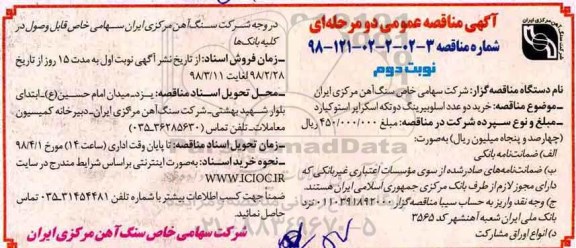 آگهی مناقصه عمومی دو مرحله‌ای
شماره مناقصه ۳-۰۲-۲-۰۲-۱۲۱-۹۸
نوبت دوم
شرکت سنگ آهن مرکزی ایران
نام دستگاه مناقصه‌گزار: شرکت سهامی خاص سنگ آهن مرکزی ایران
ـ موضوع مناقصه: خرید دو عدد اسلویرینگ دوتکه اسکرابر استوکیارد
ـ مبلغ و نوع سپرده شرکت در مناقصه: مبلغ ۴۵۰/۰۰۰/۰۰۰ ریال
(چهارصد و پنجاه میلیون ریال) به‌صورت:
الف) ضمانت‌نامه بانکی
ب) ضمانت‌نامه‌های صادر شده از سوی مؤسسات اعتباری غیربانکی که
دارای مجوز لازم از طرف بانک مرکزی جمهوری اسلامی ایران هستند.
ج) وجه نقد واریز به حساب سیبا مناقصه‌گزار ۰۱۱۰۳۹۱۸۹۲۰۰۰ نزد
بانک ملی ایران شعبه آهنشهر کد ۳۵۶۵
د) انواع اوراق مشارکت
در وجه شرکت سنگ آهن مرکزی ایران سهامی خاص قابل وصول در
کلیه بانک‌ها
ـ زمان فروش اسناد: از تاریخ نشر آگهی نوبت اول به مدت ۱۵ روز از تاریخ
۹۸/۲/۲۸ لغایت ۹۸/۳/۱۱
ـ محل تحویل اسناد مناقصه: یزد ـ میدان امام حسین(ع) ـ ابتدای
بلوار شهید بهشتی ـ شرکت سنگ آهن مرکزی ایران ـ دبیرخانه کمیسیون
معاملات ـ تلفن تماس (۳۶۲۸۵۶۳۰-۰۳۵)
ـ زمان تحویل اسناد مناقصه: تا پایان وقت اداری (ساعت ۱۴) مورخ ۹۸/۴/۱
ـ نحوه خرید اسناد: به‌صورت اینترنتی بر اساس شرایط مندرج در سایت
WWW.ICIOC.IR
ضمناً جهت کسب اطلاعات بیشتر با شماره تلفن ۳۱۴۵۴۴۸۱-۰۳۵ تماس
حاصل نمائید.
شرکت سهامی خاص سنگ آهن مرکزی ایران